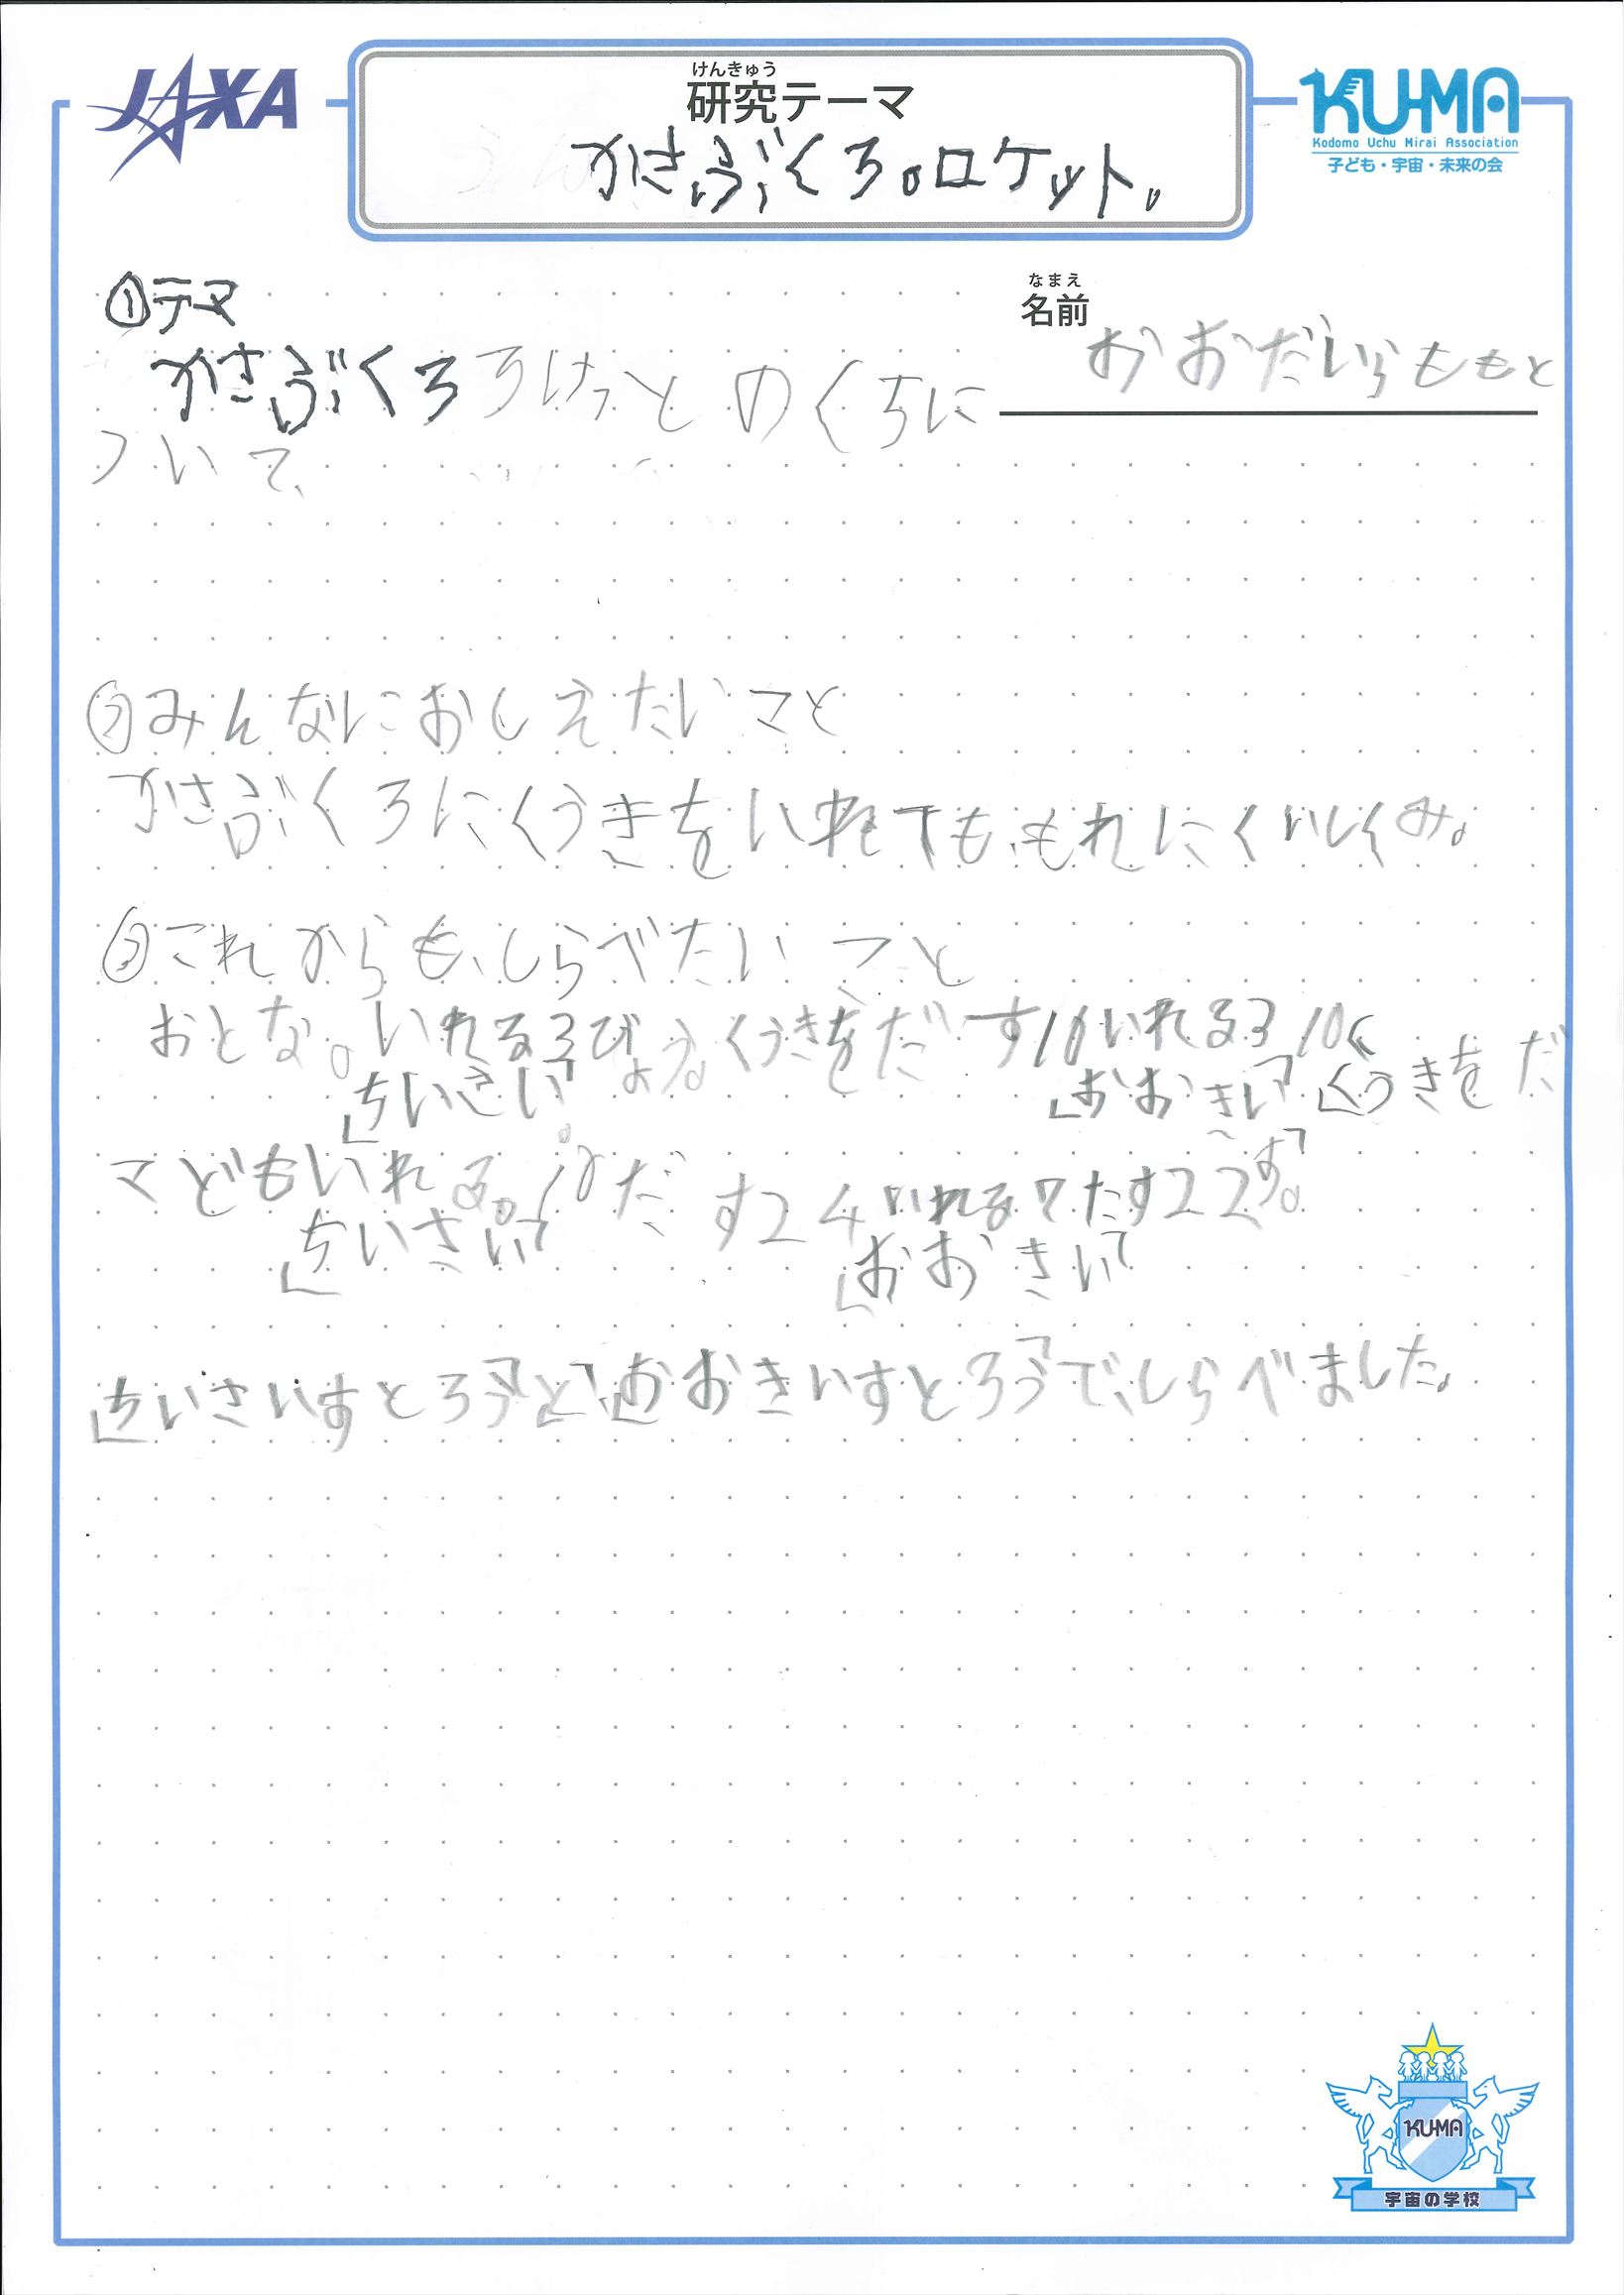 JAXA
けんきゅう
研究テーマ
かさぶくろ。ロケット。
KU-MA
Kodomo Uchu Mirai Association
子ども・宇宙・未来の会
なまえ
名前
おおだいらももと
①テーマ
かさぶくろろけっとのくちに
ついて、
②みんなにおしえたいこと
かさぶくろにくうきをいれても、もれにくいしくみ。
③これからも、しらべたいこと
おとな。いれる3びょう。くうきをだす10いれる3 10く
「ちいさい」 「おおきい」 「くうきをだ
す」
こどもいれる。10だす24いれる7だす22。
「ちいさい」 「おおきい」
「ちいさいすとろう」「と」「おおきいすとろう」で、しらべました。
KU-MA
宇宙の学校